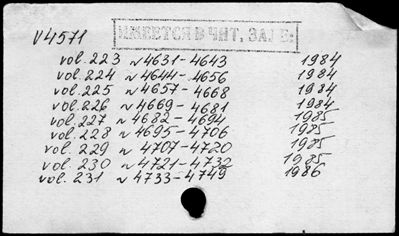 V4571
ИМЕЕТСЯ В ЧИТ. ЗАЛЕ
vol. 223 N 4631-4643 1984
vol. 224 N 4644-4656 1984
vol. 225 N 4657-4668 1984
vol. 226 N 4669-4681 1984
vol. 227 N 4682-4694 1985
vol. 228 N 4695-4706 1985
vol. 229 N 4707-4720 1985
vol. 230 N 4721-4732 1985
vol. 231 N 4733-4749 1986